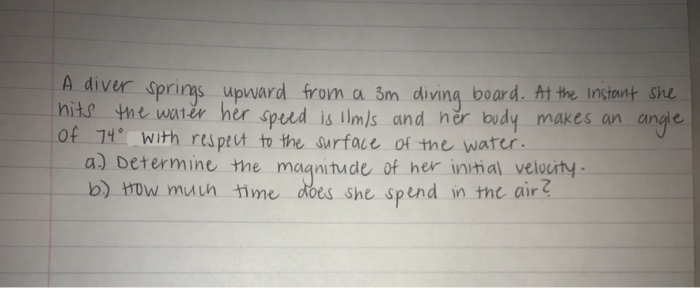 A diver springs upward from a 3m diving board. At the instant she
hits the water her speed is 11m/s and her body makes an angle
of 74° with respect to the surface of the water.
a.) Determine the magnitude of her initial velocity.
b.) How much time does she spend in the air?